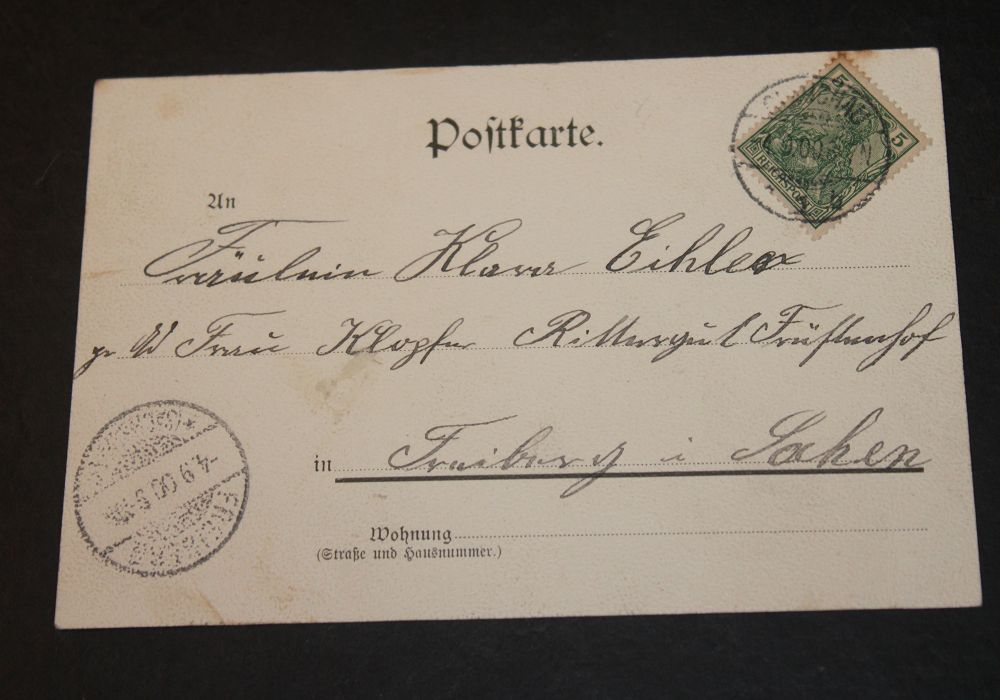 Postkarte.
5
5
REICHSPOST
An
Fräulein Klara Eihler
Frau Klopfer Rittergut Fürstenhof
in Freiberg i Sachen
-4.9 00
Wohnung
(Straße und Hausnummer.)